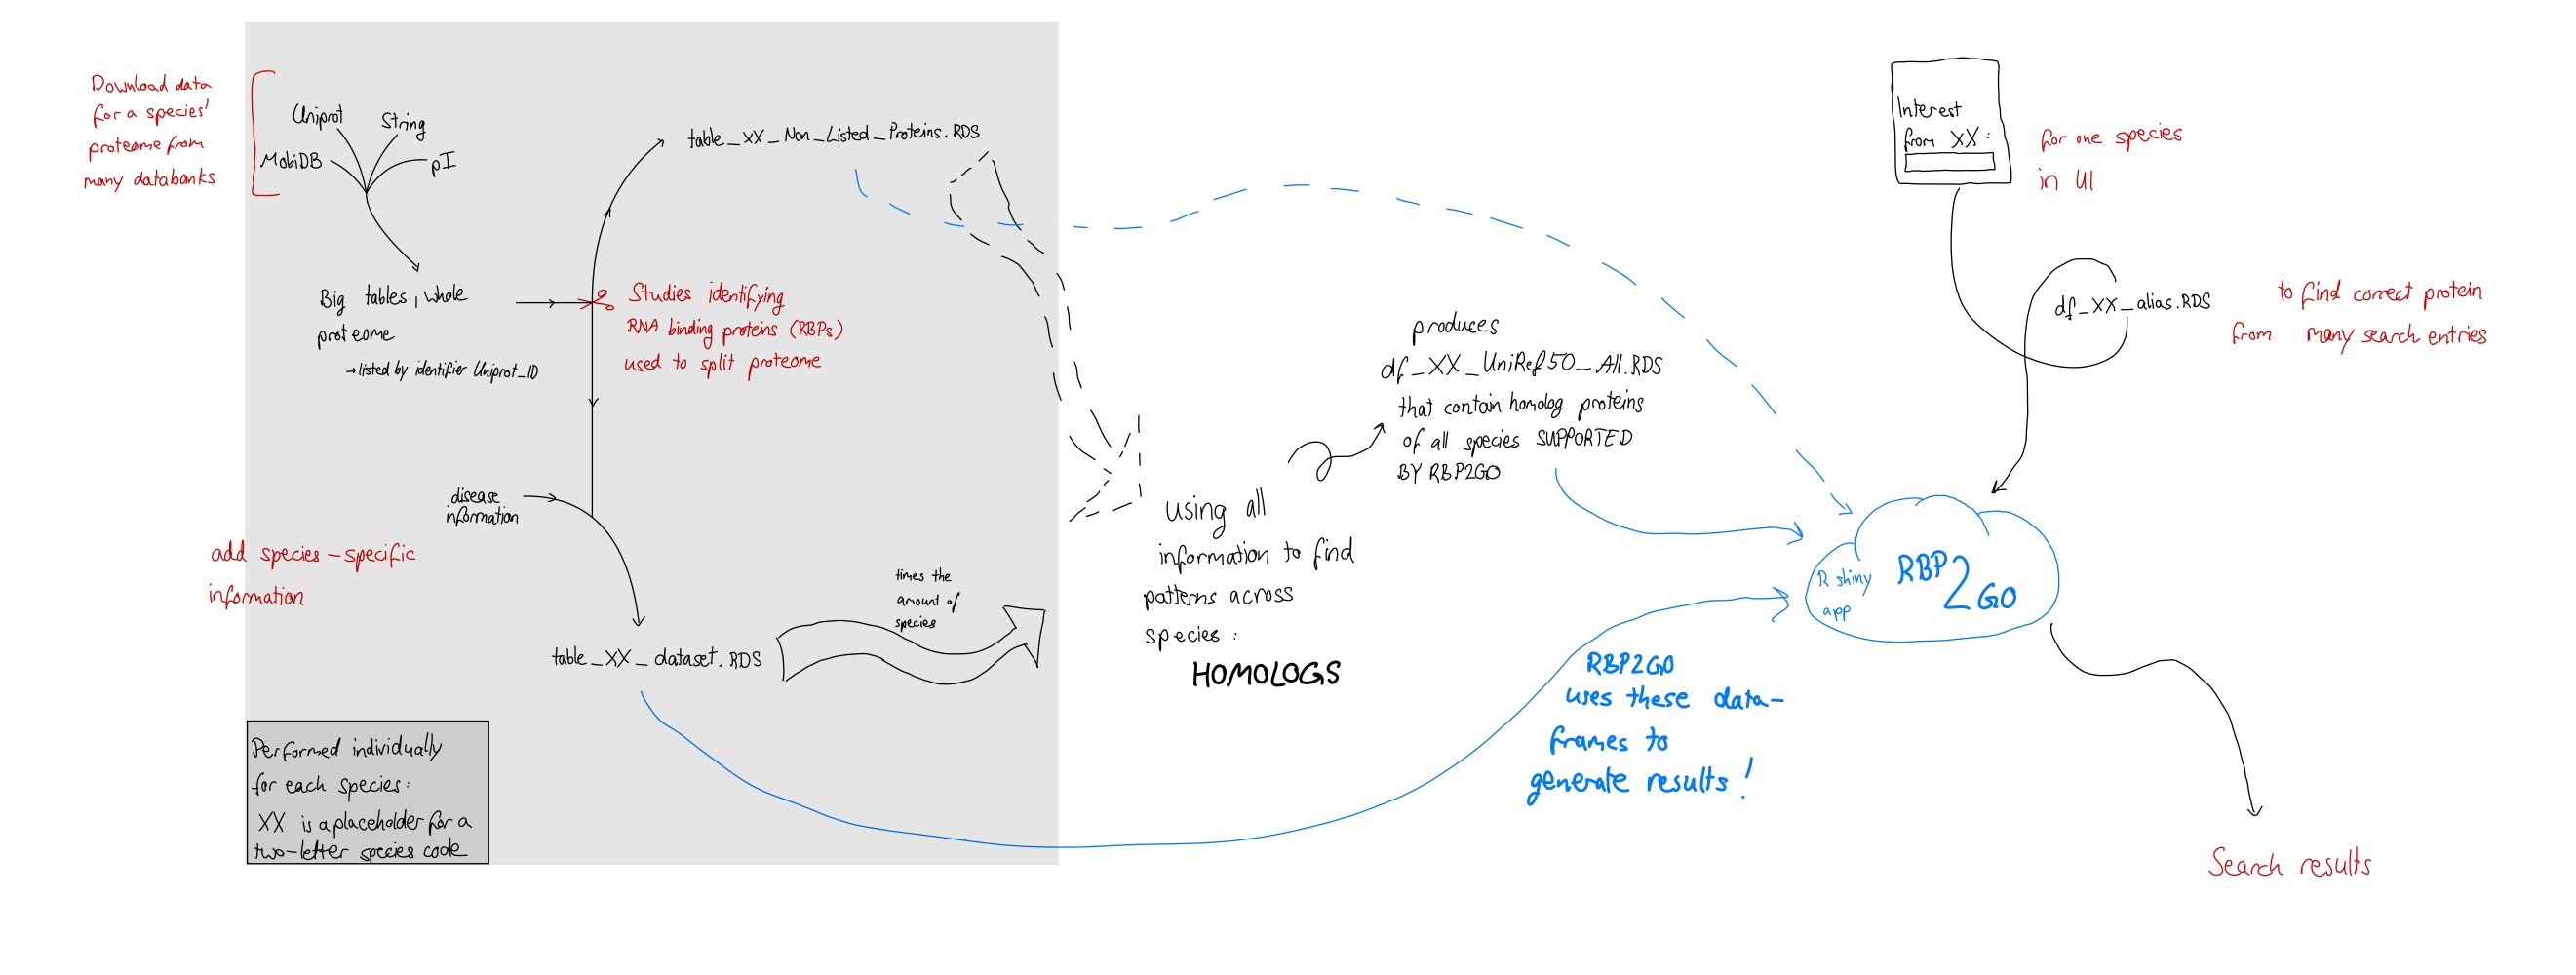 Download data
for a species'
proteome from
many databanks
Uniprot
String
MobiDB
pI
Big tables, whole
proteome
→ listed by identifier Uniprot_ID
table_XX_Non_Listed_Proteins.RDS
Studies identifying
RNA binding proteins (RBPs)
used to split proteome
disease
information
add species-specific
information
table_XX_dataset.RDS
times the
amount of
species
Performed individually
for each species:
XX is a placeholder for a
two-letter species code
using all
information to find
patterns across
species:
HOMOLOGS
produces
df_XX_UniRef50_All.RDS
that contain homolog proteins
of all species SUPPORTED
BY RBP2GO
RBP2GO
uses these data-
frames to
generate results!
Interest
from XX:
for one species
in UI
df_XX_alias.RDS
to find correct protein
from many search entries
R shiny
app
RBP2GO
Search results